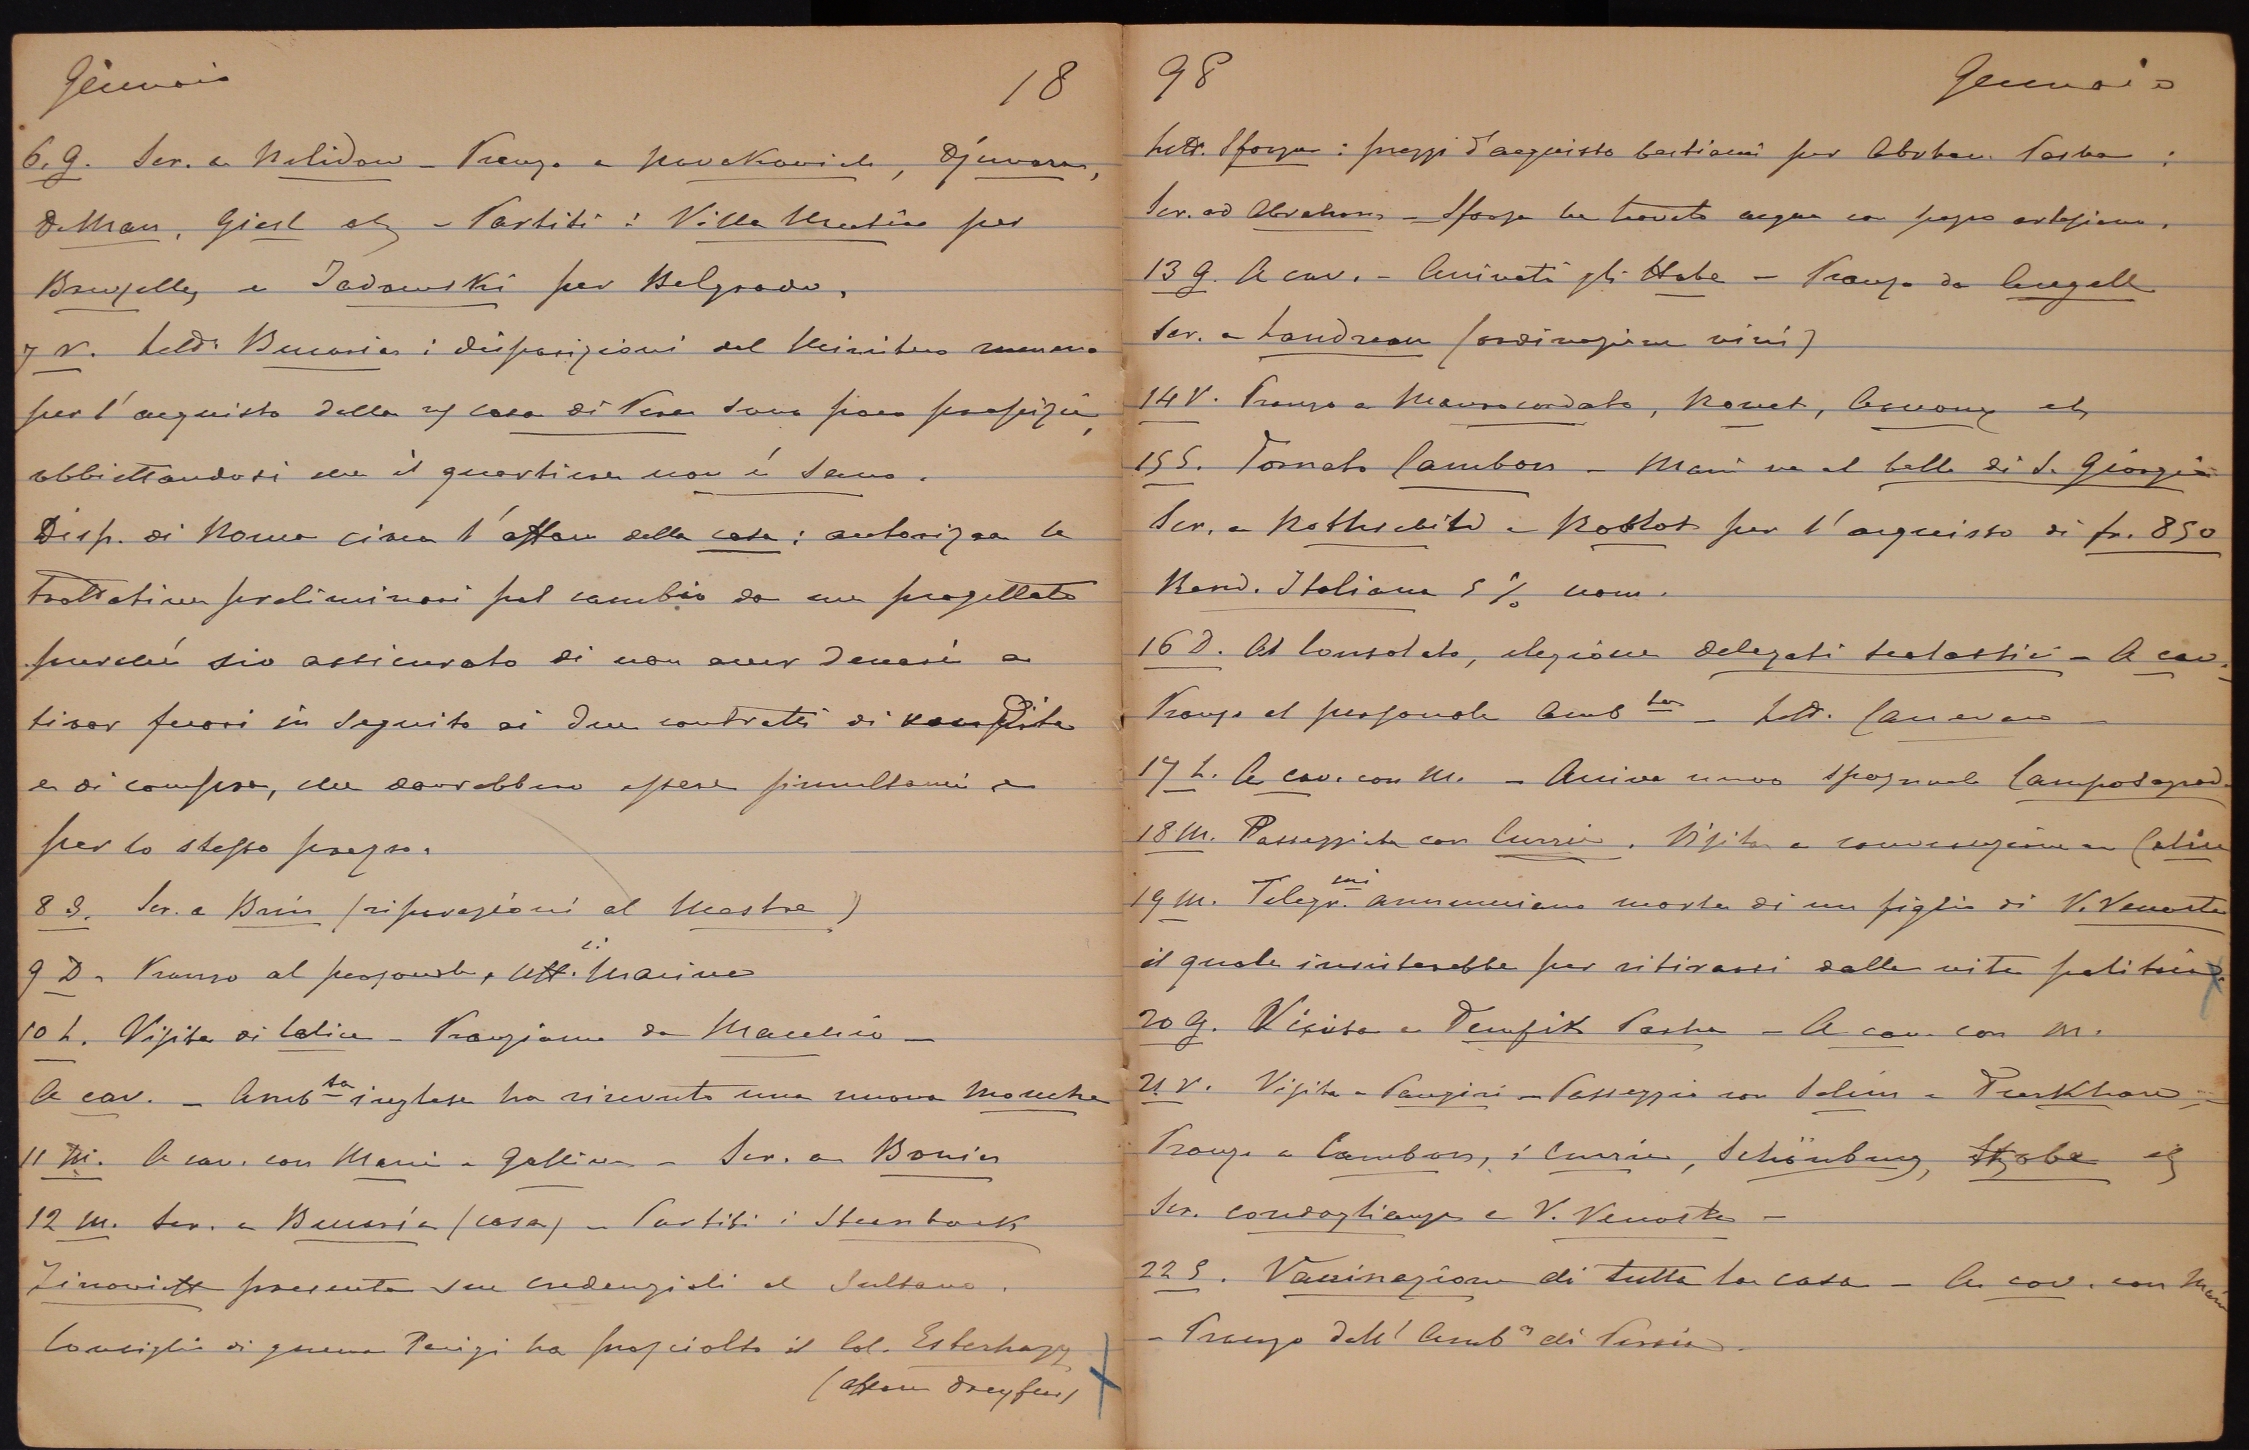 Gennaio 18
6. G. Scr. a Nelidow – Pranzo a Novakovich, Djuvara,
DeMan, Giesl etc – Partiti: Villa Urrutia per
Bruxelles e Jadowski per Belgrado.
7 V. Lett. Bucaria: disposizioni del Ministero
per l'acquisto della casa di Pera sono poco propizie,
obbiettandosi che il quartiere non è sano.
Disp. di Roma circa l'affare della casa: autorizza le
trattative preliminari pel cambio da me progettato
purché sia assicurato di non aver denari a
tirar fuori in seguito ai due contratti di vendita
e di compra, che dovrebbero essere simultanei e
per lo stesso prezzo.
8 S. Scr. a Brin (riparazioni al Mestre)
9 D. Pranzo al personale, Uff.li Marina
10 L. Visita di Calice – Pranziamo da Macchio –
A cav. – Amb.ta inglese ha ricevuto una nuova mouche
11 M. A cav. con Marie e Gallina – Scr. a Bonin
12 M. Scr. a Bucaria (casa) – Partiti i Steenbock
Zinowieff presenta sue credenziali al Sultano.
Consiglio di guerra Parigi ha prosciolto il Col. Esterhazy
(affare Dreyfus)
98 Gennaio
Lett. Sforza: prezzi d'acquisto bestiami per Abraham Pasha:
Scr. ad Abraham – Sforza ha trovato acqua con pozzo artesiano.
13 G. A cav. – Arrivati gli Habe – Pranzo da
Scr. a Landreau (ordinazione vini)
14 V. Pranzo a Maurocordato, Rouet, etc
15 S. Tornato Cambon – Marie va al ballo di S. Giorgio
Scr. a Rothschild e Bottot per l'acquisto di fr. 850
Rend. Italiana 5 % nom.
16 D. Al Consolato, elezione delegati scolastici – A cav.
Pranzo al personale Amb.ta – Lett. Canevaro –
17 L. A cav. con M. – Arriva nuovo spagnuolo Camposagrado
18 M. Passeggiata con Currie. Visita e conversazione a Calice
19 M. Telegr.mi annunciano morte di un figlio di V. Venosta
il quale insisterebbe per ritirarsi dalla vita politica.
20 G. Visita a Tewfik Pasha – A cav. con M.
21 V. Visita a Pangiri – Passeggio con Selim e Turkhan –
Pranzo a Cambon, i Currie, Schönburg, etc
Scr. condoglianze a V. Venosta –
22 S. Vaccinazione di tutta la casa – A cav. con Marie
– Pranzo dall'Amb.re di Persia.